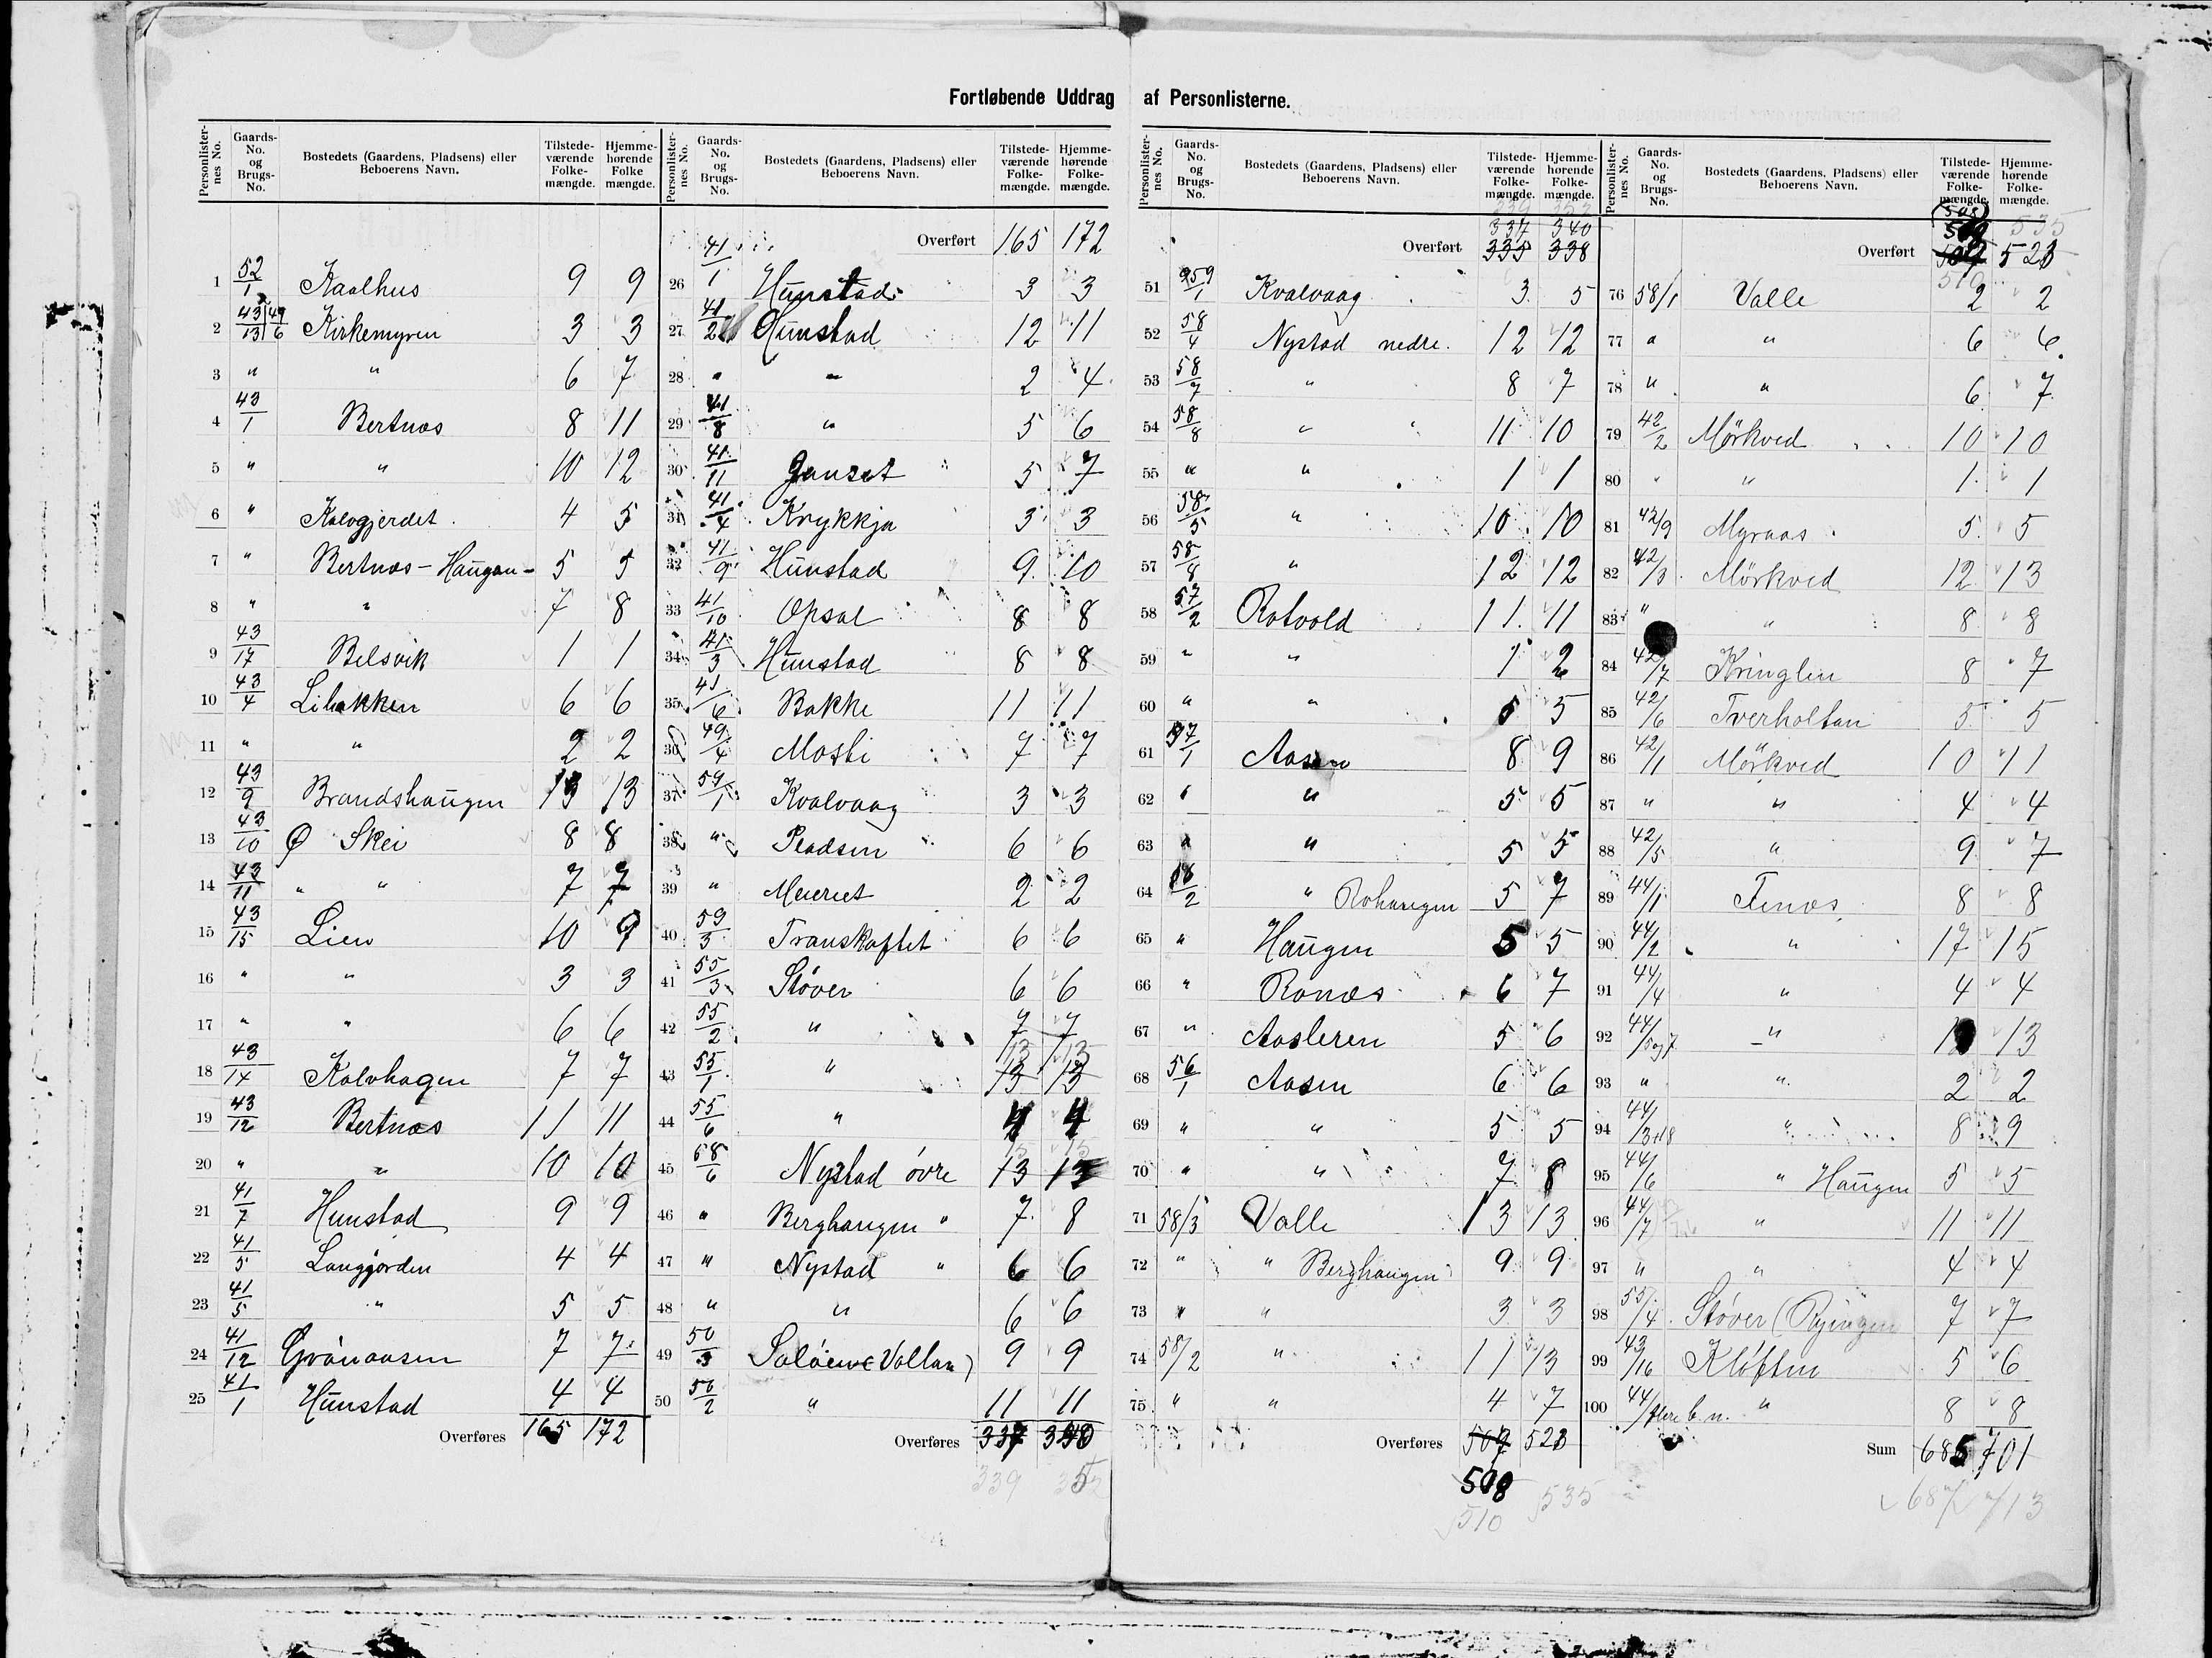 Fortløbende Uddrag af Personlisterne.
Personlisternes No. Gaards-No. og Brugs-No. Bostedets (Gaardens, Pladsens) eller Beboerens Navn. Tilstedeværende Folkemængde. Hjemmehørende Folke mængde.
1 52/1 Kaalhus 9 9
2 43/13 49/6 Kirkemyren 3 3
3 " " 6 7
4 43/1 Bertnæs 8 11
5 " " 10 12
6 " Kalvgjerdet 4 5
7 " Bertnæs-Haugan- 5 5
8 " " 7 8
9 43/17 Belsvik 1 1
10 43/4 Libakken 6 6
11 " " 2 2
12 43/9 Brandshaugen 13 13
13 43/10 Ø Skei 8 8
14 43/11 " " 7 7
15 43/15 Lien 10 9
16 " " 3 3
17 " " 6 6
18 43/14 Kalvhagen 7 7
19 43/12 Bertnæs 11 11
20 " " 10 10
21 41/7 Hunstad 9 9
22 41/5 Langjorden 4 4
23 41/5 " 5 5
24 41/12 Grånaasen 7 7
25 41/1 Hunstad 4 4
Overføres 165 172
Personlisternes No. Gaards-No. og Brugs-No. Bostedets (Gaardens, Pladsens) eller Beboerens Navn. Tilstedeværende Folkemængde. Hjemmehørende Folkemængde.
Overført 165 172
26 41/1 Hunstad 3 3
27 41/2 Hunstad 12 11
28 " " 2 4
29 41/8 " 5 6
30 41/11 Junset 5 7
31 41/4 Krykkja 3 3
32 41/9 Hunstad 9 10
33 41/10 Opsal 8 8
34 41/3 Hunstad 8 8
35 41/6 Bakke 11 11
36 49/4 Mosti 7 7
37 59/1 Kvalvaag 3 3
38 " Pladsen 6 6
39 " Meieriet 2 2
40 59/3 Transkoftet 6 6
41 55/3 Støver 6 6
42 55/2 " 7 7
43 55/1 " 13 13 13 13
44 55/6 " 4 4
45 58/6 Nystad övre 15 15 13 13
46 " Berghaugen " 7 8
47 " Nystad " 6 6
48 " " 6 6
49 50/3 Soløien (Vollan) 9 9
50 50/2 " 11 11
Overføres 337 350
339 352
Personlisternes No. Gaards-No. og Brugs-No. Bostedets (Gaardens, Pladsens) eller Beboerens Navn. Tilstedeværende Folkemængde. Hjemmehørende Folkemængde.
339 352
334 340
Overført 335 338
51 59/1 Kvalvaag 3 5
52 58/4 Nystad nedre 12 12
53 58/7 " 8 7
54 58/8 " 11 10
55 " " 1 1
56 58/5 " 10 10
57 58/8 " 12 12
58 57/2 Rotvold 11 11
59 " " 1 2
60 " " 5 5
61 57/1 Aasen 8 9
62 " " 5 5
63 " " 5 5
64 18/2 " Rohaugen 5 7
65 " Haugen 5 5
66 " Ronæs 6 7
67 " Aasleren 5 6
68 56/1 Aasen 6 6
69 " " 5 5
70 " " 7 8
71 58/3 Valle 13 13
72 " " Berghaugen 9 9
73 " " 3 3
74 58/2 " 11 13
75 " " 4 7
Overføres 507 523
508
510 535
Personlisternes No. Gaards-No. og Brugs-No. Bostedets (Gaardens, Pladsens) eller Beboerens Navn. Tilstedeværende Folkemængde. Hjemmehørende Folkemængde.
508 535
Overført 507 523
510
76 58/1 Valle 2 2
77 " " 6 6
78 " " 6 7
79 42/2 Mørkved 10 10
80 " " 1 1
81 42/9 Myraas 5 5
82 42/3 Mørkved 12 13
83 " " 8 8
84 42/7 Kringlen 8 7
85 42/6 Tverholtan 5 5
86 42/1 Mørkved 10 11
87 " " 4 4
88 42/5 " 9 7
89 44/1 Tenæs 8 8
90 44/2 " 17 15
91 44/4 " 4 4
92 44/5og7 " 13
93 " " 2 2
94 44/3+8 " 8 9
95 44/6 " Haugen 5 5
96 44/7 " 11 11
97 " " 4 4
98 55/4 Støver (Ryingen 7 7
99 43/16 Kløften 5 6
100 44/flere b.n. " 8 8
Sum 685 701
687 713